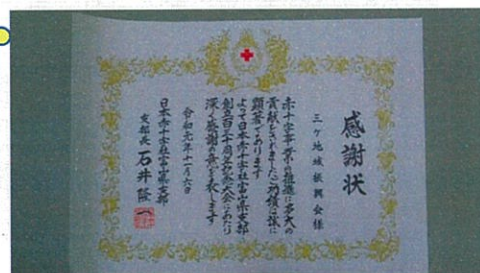 感謝状
三ケ地域振興会様
赤十字事業の推進に多大の
貢献をされました功績は誠に
顕著であります
よって日本赤十字社富山県支部
創立百三十周年記念大会にあたり
深く感謝の意を表します
令和元年十一月六日
日本赤十字社富山県支部
支部長 石井隆一